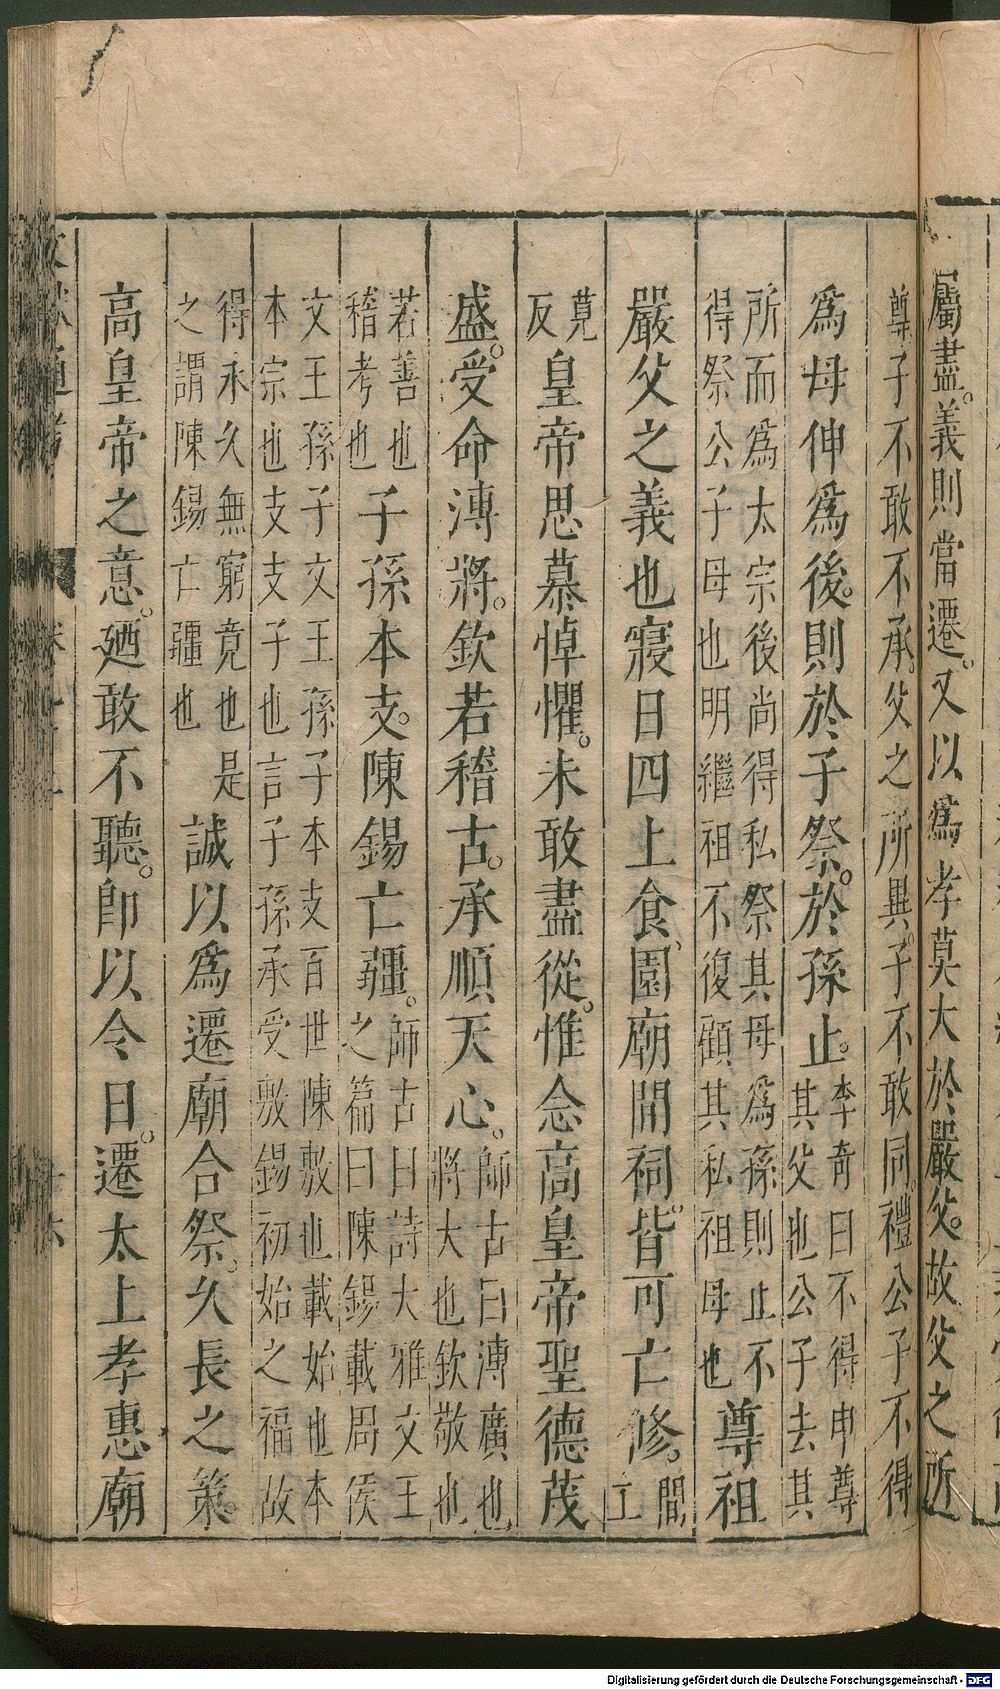 屬盡。義則當遷。又以爲孝莫大於嚴父。故父之所
尊子不敢不承。父之所異。子不敢同。禮公子不得
爲母伸爲後。則於子祭。於孫止。李奇曰不得申尊
其父也公子去其
所而爲太宗後尚得私祭其母爲孫則止不
得祭公子母也明繼祖不復顧其私祖母也尊祖
嚴父之義也寢日四上食、園廟間祠。皆可亡修。間
工
莧
反皇帝思慕悼懼。未敢盡從。惟念高皇帝聖德茂
盛。受命溥將。欽若稽古。承順天心。師古曰溥廣也
將大也欽敬也
若善也
稽考也子孫本支。陳錫亡疆。師古曰詩大雅文王
之篇曰陳錫載周侯
文王孫子文王孫子本支百世陳敷也載始也本
本宗也支支子也言子孫承受敷錫初始之福故
得永久無窮竟也是
之謂陳錫亡疆也誠以爲遷廟合祭。久長之策。
高皇帝之意。廼敢不聽。卽以令日。遷太上孝惠廟
Digitalisierung gefördert durch die Deutsche Forschungsgemeinschaft - DFG